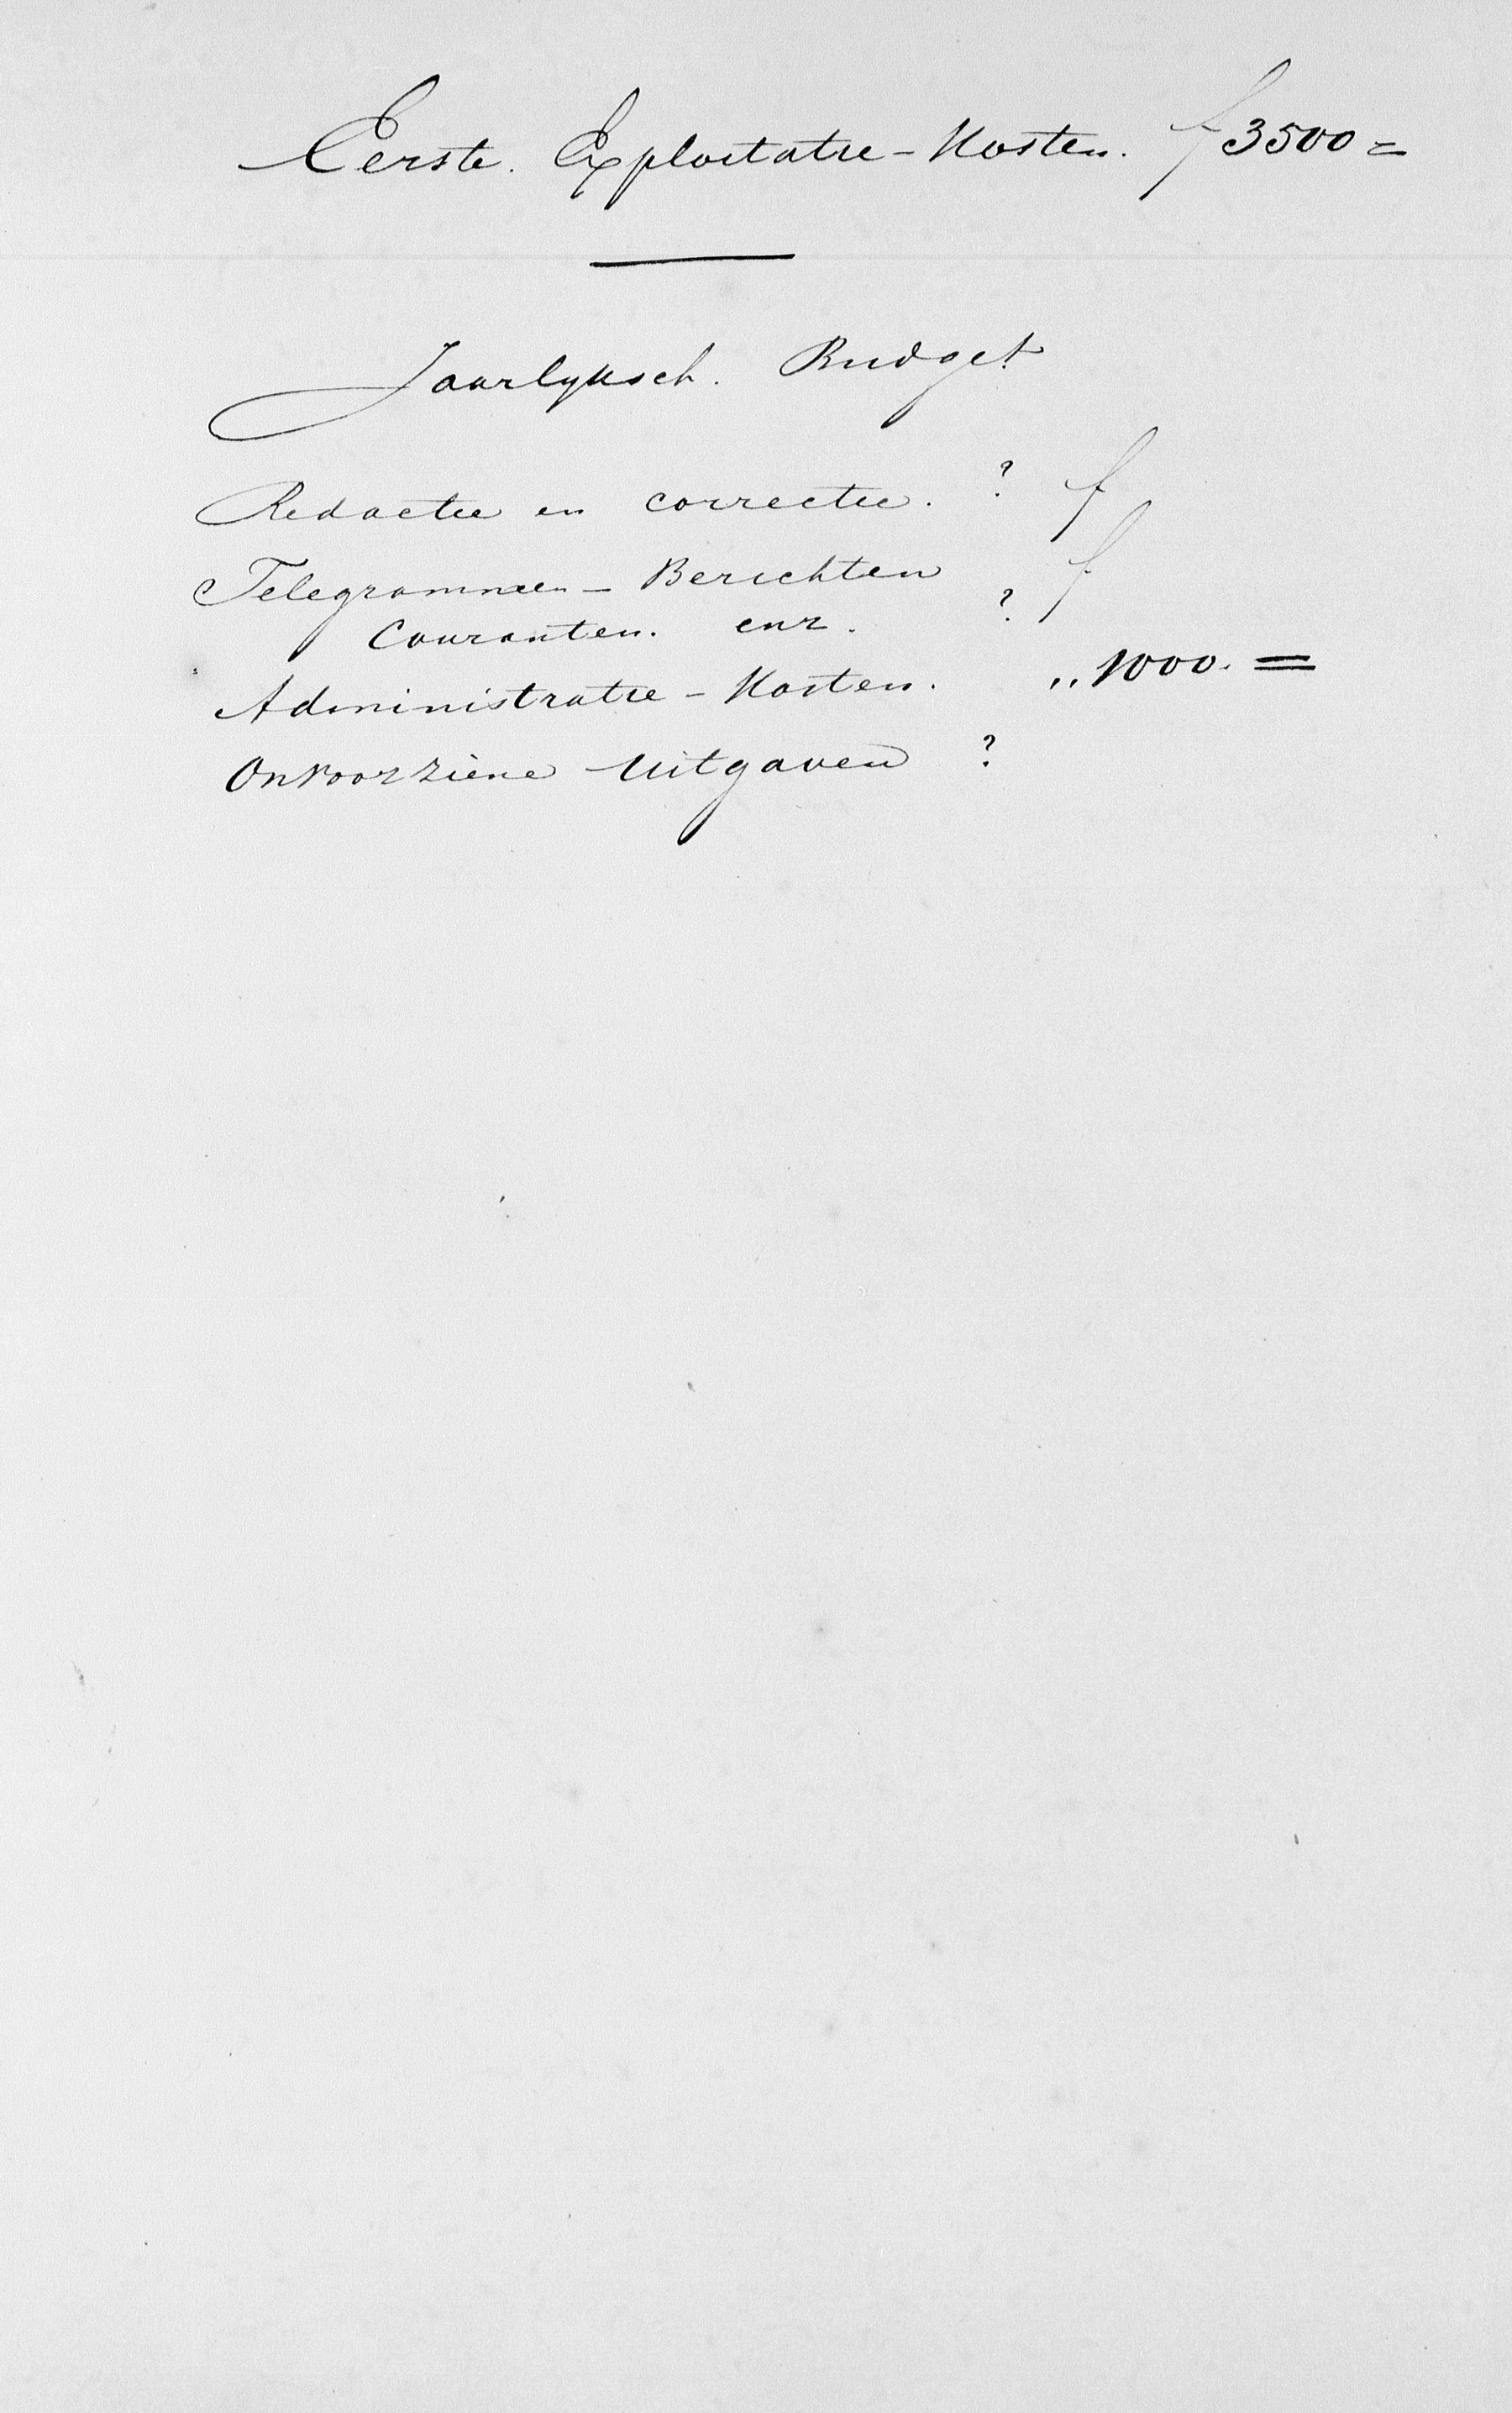 Eerste. Exploitatie - Kosten. f 3500 =
Jaarlyksch. Budget
Redactie en correctie. ? f
Telegrammen - Berichten f
Couranten. enz. ?
Administratie - Kosten. „ 1000. =
Onvoorziene Uitgaven ?